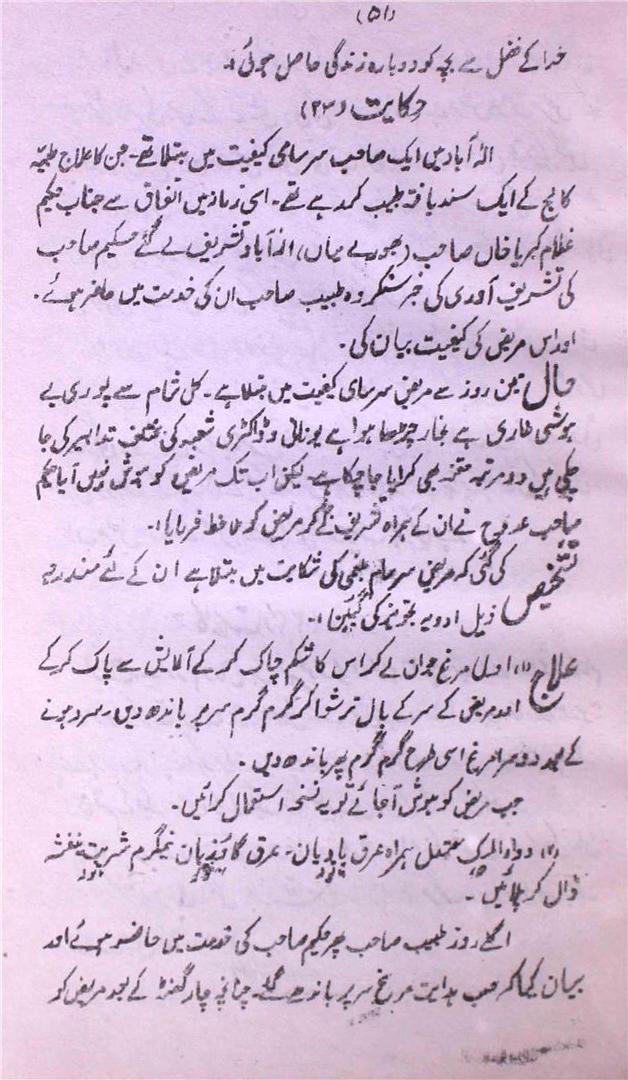 (۵۱)
خدا کے فضل سے بچہ کو دوبارہ زندگی حاصل ہوئی۔
حکایت (۲۳)
الہ آباد میں ایک صاحب سرسامی کیفیت میں مبتلا تھے۔ جن کا علاج طبیہ
کالج کے ایک سند یافتہ طبیب کر رہے تھے۔ اسی زمانہ میں اتفاق سے جناب حکیم
غلام کبریا خاں صاحب (بھورے میاں) الہ آباد تشریف لے گئے حکیم صاحب
کی تشریف آوری کی خبر سنکر وہ طبیب صاحب ان کی خدمت میں حاضر ہوئے۔
اور اس مریض کی کیفیت بیان کی۔
حال تین روز سے مریض سرسامی کیفیت میں مبتلا ہے۔ کل شام سے پوری بے
ہوشی طاری ہے بخار چڑھا ہوا ہے یونانی و ڈاکٹری شعبہ کی مختلف تدابیر کی جا
چکی ہیں دو مرتبہ حقنہ بھی کرایا جا چکا ہے لیکن اب تک مریض کو ہوش نہیں آیا حکیم
صاحب ممدوح نے ان کے ہمراہ تشریف لے جا کر مریض کو ملاحظہ فرمایا۔
تشخیص کی گئی کہ مریض سرسام بلغمی کی شکایت میں مبتلا ہے ان کے لئے مندرجہ
ذیل ادویہ تجویز کی گئیں۔
علاج (۱) اصیل مرغ جوان لے کر اس کا شکم چاک کر کے آلائش سے پاک کر کے
اور مریض کے سر کے بال ترشوا کر گرم گرم سر پر باندھ دیں۔ سرد ہونے
کے بعد دوسرا مرغ اسی طرح گرم گرم پھر باندھ دیں۔
جب مریض کو ہوش آ جائے تو یہ نسخہ استعمال کرائیں۔
(۲) دواء المسک معتدل ہمراہ عرق بادیان۔ عرق گاؤزبان نیمگرم شربت بنفشہ
ڈال کر پلائیں۔
اگلے روز طبیب صاحب پھر حکیم صاحب کی خدمت میں حاضر ہوئے اور
بیان کیا کہ حسب ہدایت مرغ سر پر باندھے گئے۔ چنانچہ چار گھنٹہ کے بعد مریض کو